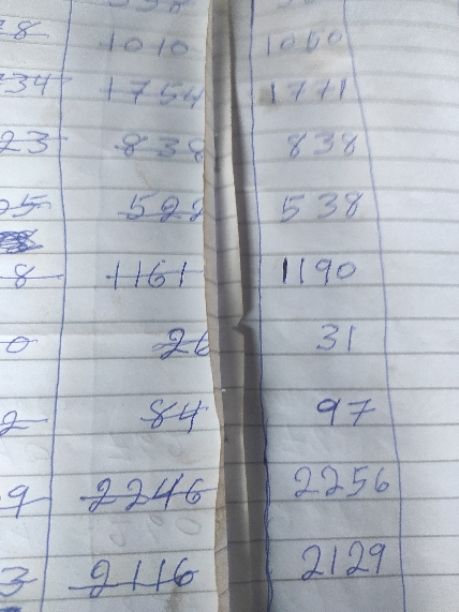 8 1010 1060
34 1754 1771
23 838 838
25 522 538
8 1161 1190
0 26 31
2 84 97
9 2246 2256
3 2116 2129